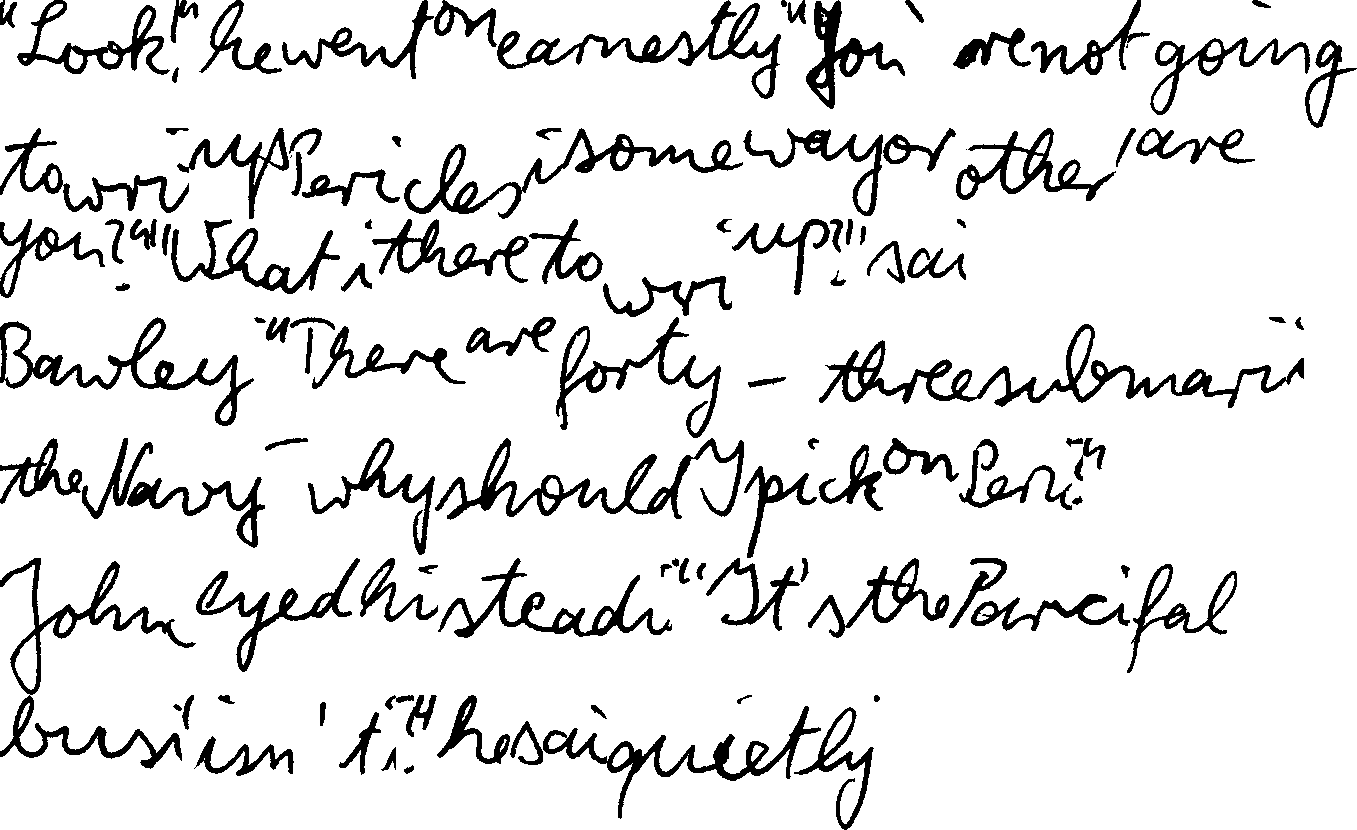 "Look," he went on earnestly "You 're not going
to wri up Pericles i some way or other, are
you?" "What i there to wri up?" sai
Bawley "There are forty - three submari i
the Navy - why should I pick on Peri?"
John eyed hi steadi. "It 's the Parcifal
busi isn 't i?" he sai quietly